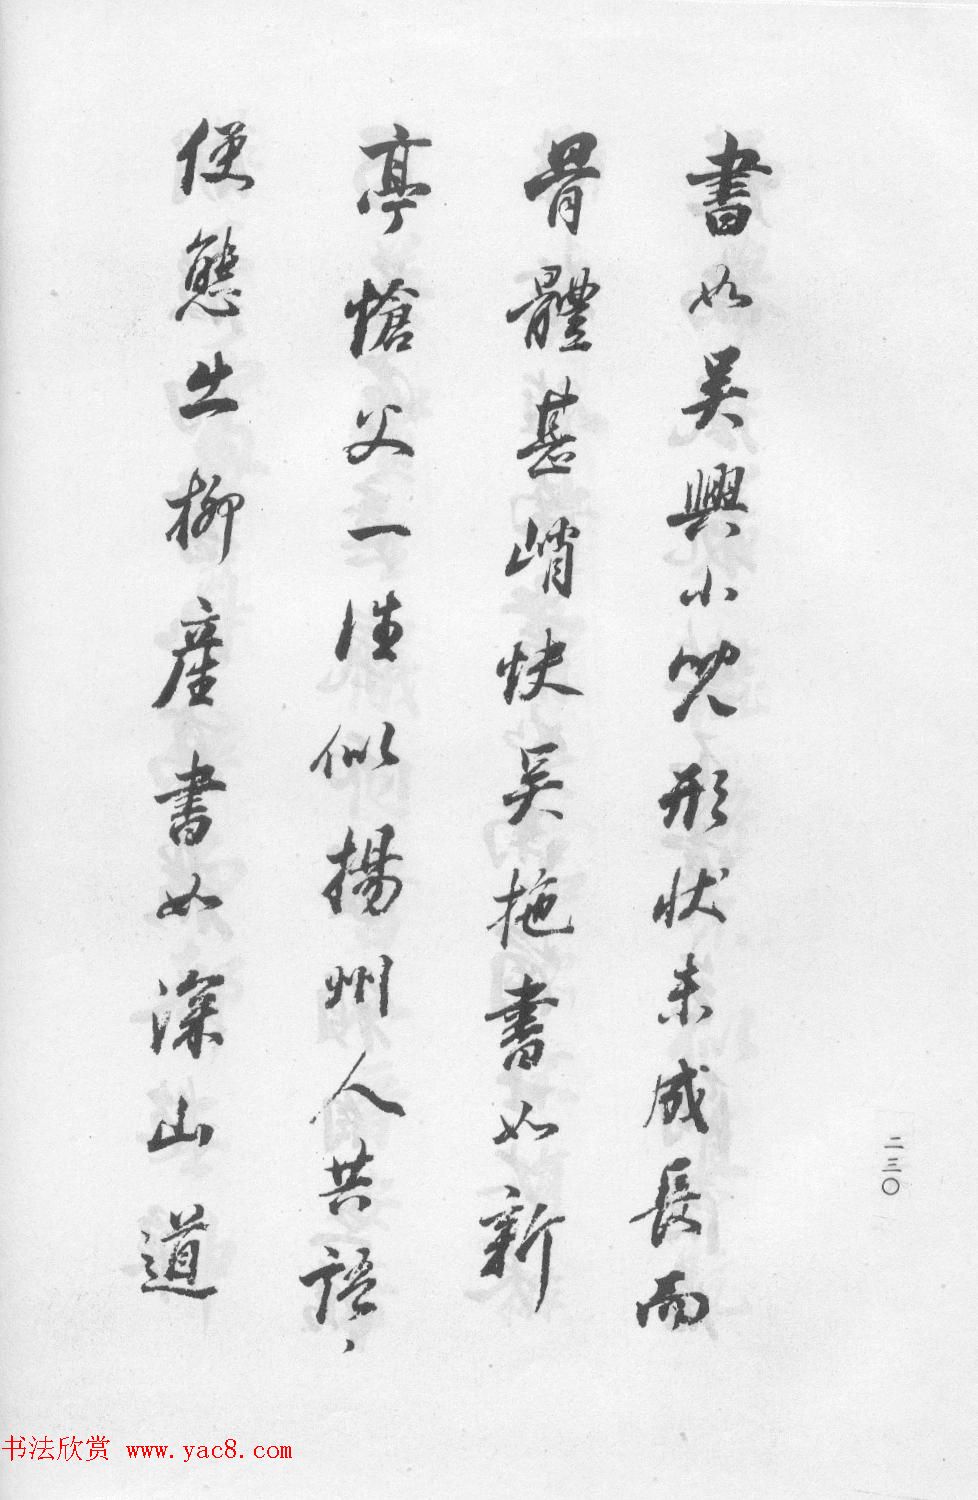 書如吳興小兒形狀未成長而
骨體甚峭快吳拖書如新
亭愴父一往似揚州人共語
便態出柳產書如深山道
二三〇
书法欣赏 www.yac8.com